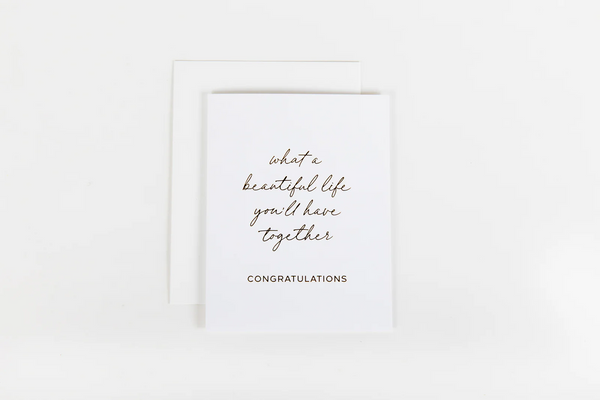 what a
beautiful life
you'll have
together
CONGRATULATIONS